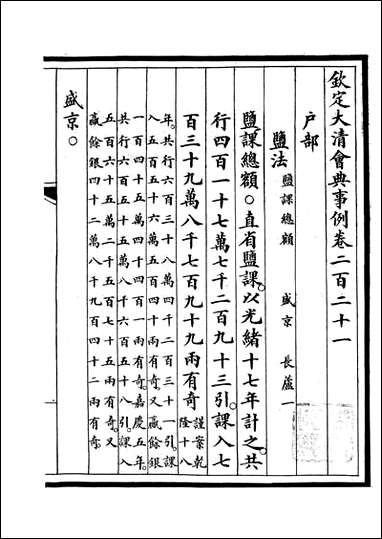 欽定大清會典事例卷二百二十一
户部
鹽法 鹽課總額 盛京 長蘆一
鹽課總額○直省鹽課。以光緒十七年計之。共
行四百一十七萬七千二百九十三引。課入七
百三十九萬八千七百九十九兩有奇 謹案乾
隆十八
年。共行六百三十八萬四千二百三十一引。課
入五百五十六萬五百四十兩有奇。又贏餘銀
一百四十五萬四千四百一兩有奇。嘉慶五年。
共行六百五十五萬八千六百五十八引。課入
五百六十五萬二千五百七十五兩有奇。又
贏餘銀四十二萬八千九百四十二兩有奇。
盛京。